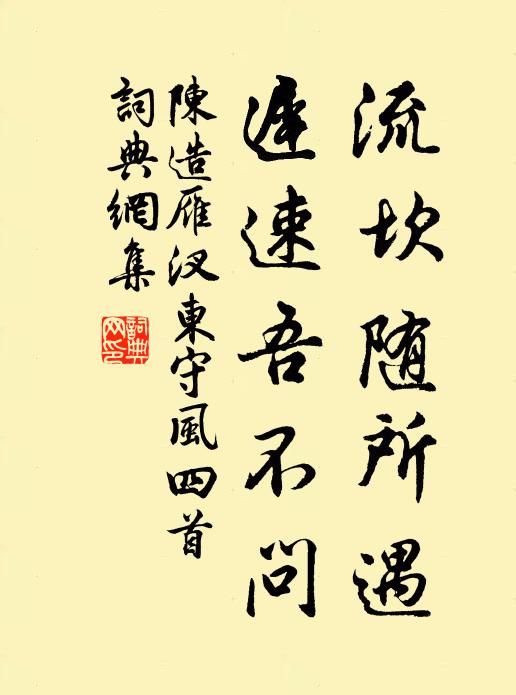 流坎随所遇
遅速吾不問
陳造雁汊東守風四首
詞典網集
詞典網印